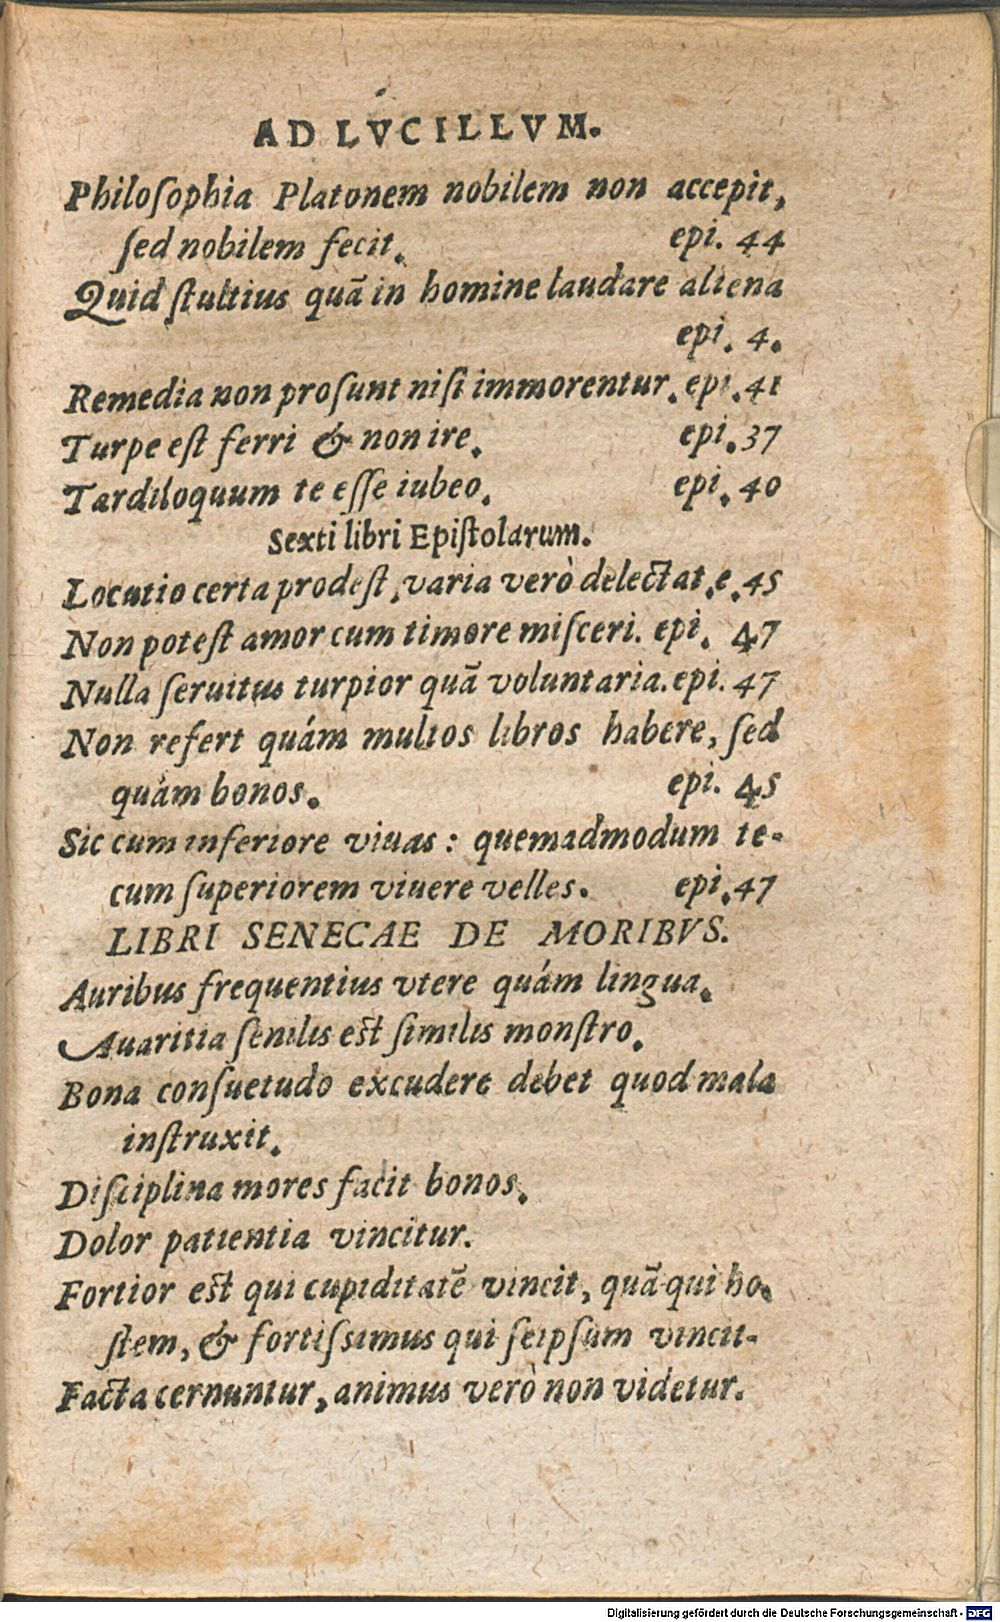 AD LVCILLVM.
Philoſophia Platonem nobilem non accepit,
ſed nobilem fecit. epi. 44
Quid ſtultius quã in homine laudare aliena
epi. 4.
Remedia non proſunt niſi immorentur. epi. 41
Turpe eſt ferri & non ire. epi. 37
Tardiloquum te eſſe iubeo. epi. 40
Sexti libri Epiſtolarum.
Locutio certa prodeſt, varia verò delectat. e. 45
Non poteſt amor cum timore miſceri. epi. 47
Nulla ſeruitus turpior quã voluntaria. epi. 47
Non refert quám multos libros habere, ſed
quàm bonos. epi. 45
Sic cum inferiore viuas: quemadmodum te-
cum ſuperiorem viuere velles. epi. 47
LIBRI SENECAE DE MORIBVS.
Auribus frequentius vtere quám lingua.
Auaritia ſenilis eſt ſimilis monſtro.
Bona conſuetudo excudere debet quod mala
inſtruxit.
Diſciplina mores facit bonos.
Dolor patientia vincitur.
Fortior eſt qui cupiditatẽ vincit, quã qui ho-
ſtem, & fortiſsimus qui ſeipſum vincit-
Facta cernuntur, animus verò non videtur.
Digitalisierung gefördert durch die Deutsche Forschungsgemeinschaft - DFG